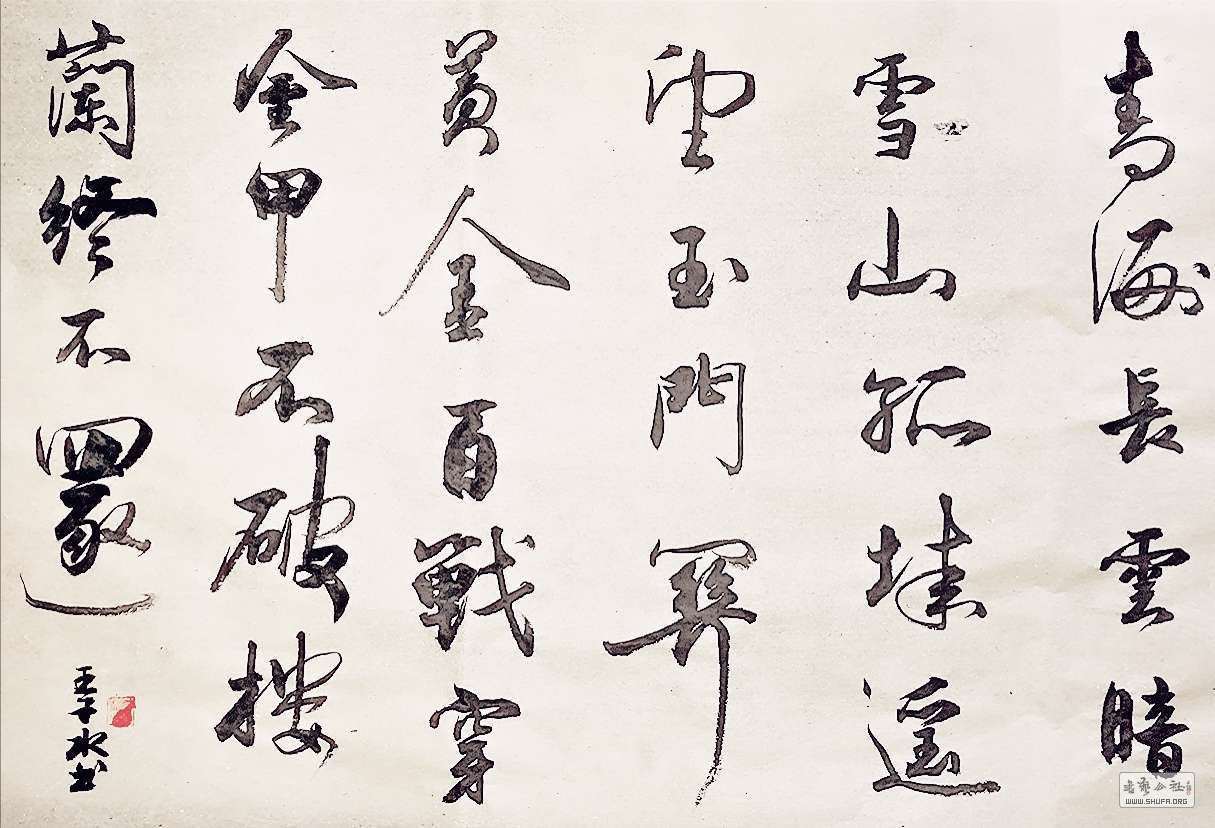 青海長雲暗
雪山孤城遥
望玉門關
黄金百戰穿
金甲不破楼
蘭終不還
王水书
书艺公社
WWW.SHUFA.ORG